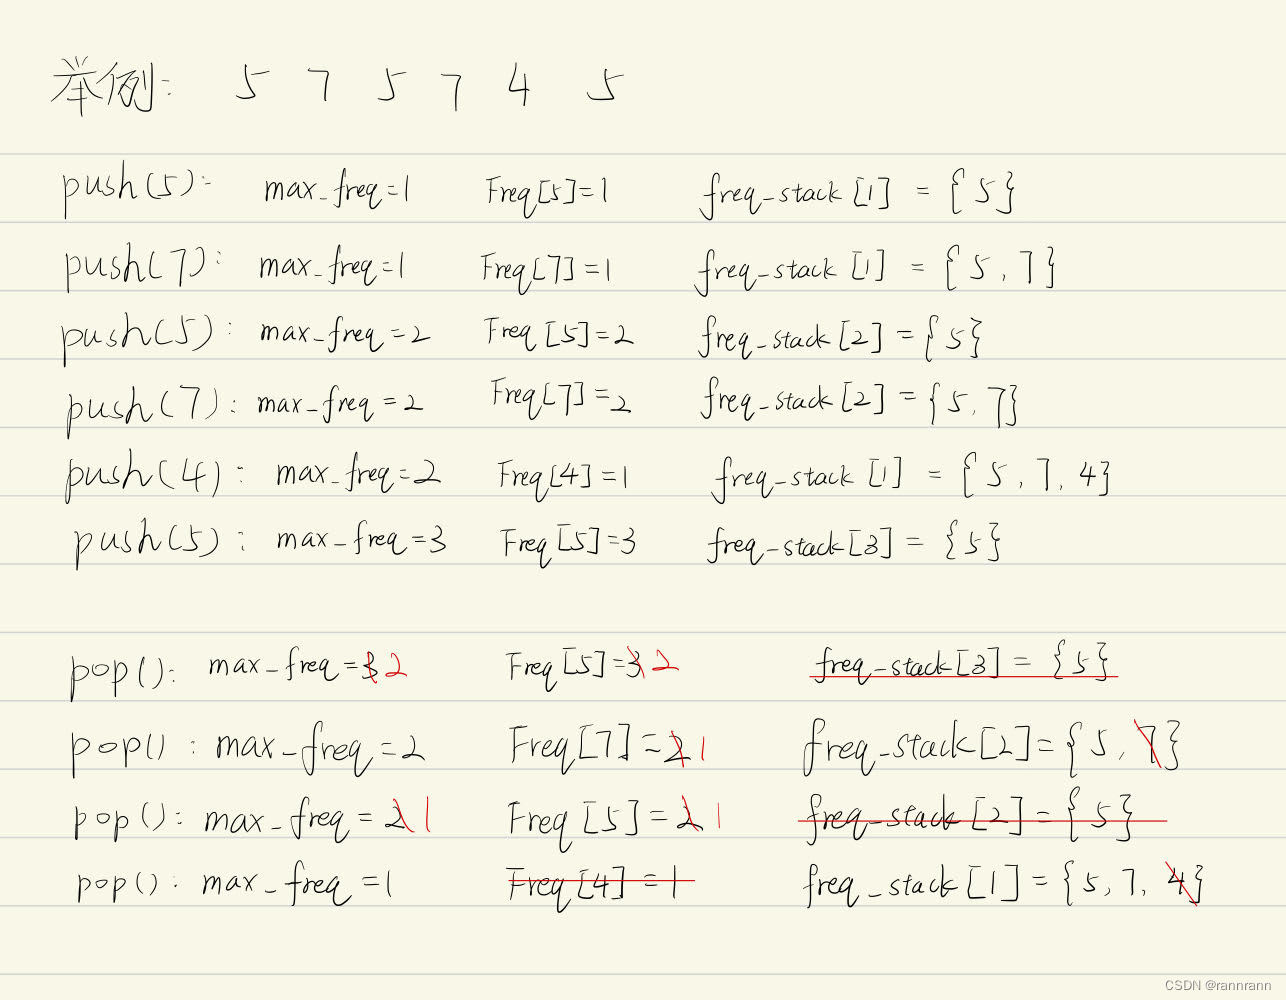 举例: 5 7 5 7 4 5
push(5): max_freq=1 Freq[5]=1 freq_stack[1] = {5}
push(7): max_freq=1 Freq[7]=1 freq_stack[1] = {5,7}
push(5): max_freq=2 Freq[5]=2 freq_stack[2] = {5}
push(7): max_freq=2 Freq[7]=2 freq_stack[2] = {5,7}
push(4): max_freq=2 Freq[4]=1 freq_stack[1] = {5,7,4}
push(5): max_freq=3 Freq[5]=3 freq_stack[3] = {5}
pop(): max_freq=3 2 Freq[5]=3 2 freq_stack[3] = {5}
pop(): max_freq=2 Freq[7]=2 1 freq_stack[2]={5,7}
pop(): max_freq=2 1 Freq[5]=2 1 freq_stack[2]={5}
pop(): max_freq=1 Freq[4]=1 freq_stack[1]={5,7,4}
CSDN @rannrann